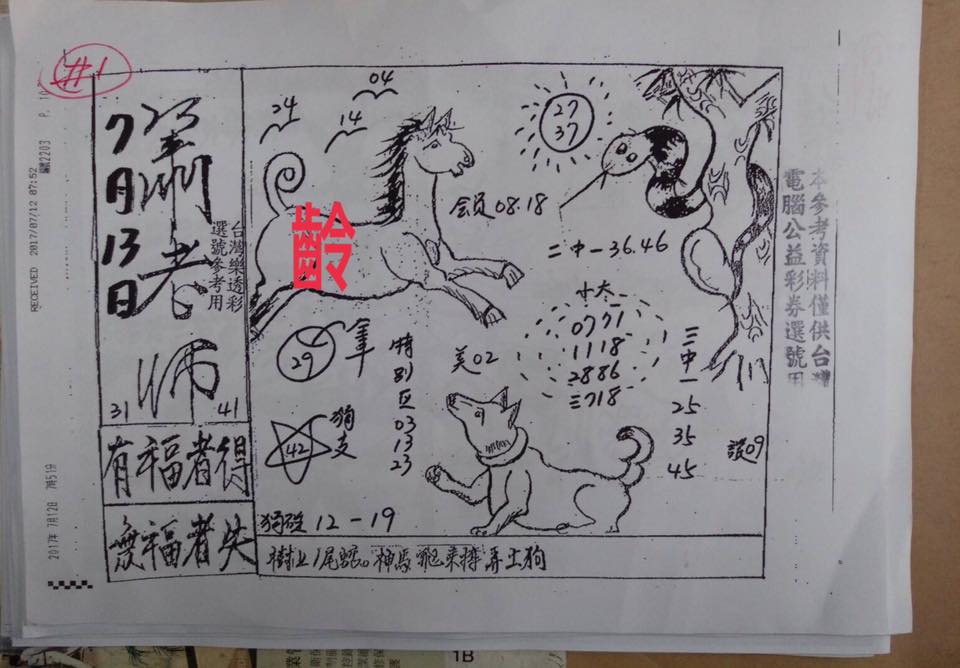 #1
RECEIVED 2017/07/12 07:52
2203
2017年 7月12日 7時51分
7月13日
蕭老師
台灣樂透彩
選號參考用
31
41
有福者得
無福者失
24
04
14
27
37
齡
08.18
二中一36.46
0771
1118
2886
3718
三中一
25
35
45
29
單
特別區
03
13
23
02
42
獨支
獨碰 12-19
09
樹上1尾蛇。神馬飛來撐弄土狗
本參考資料僅供台灣
電腦公益彩券選號用
1B